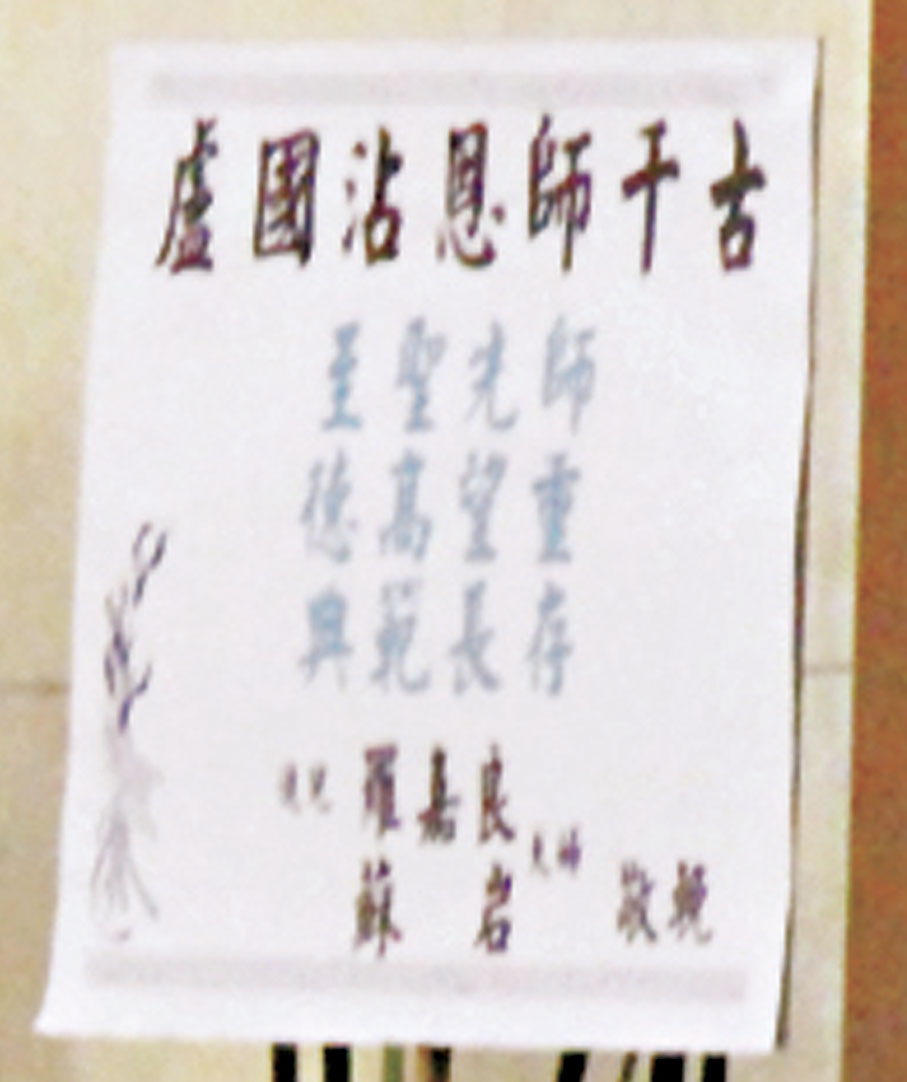 盧國沾恩師千古
至聖先師
德高望重
典範長存
羅嘉良
夫婦
蘇岩 敬輓